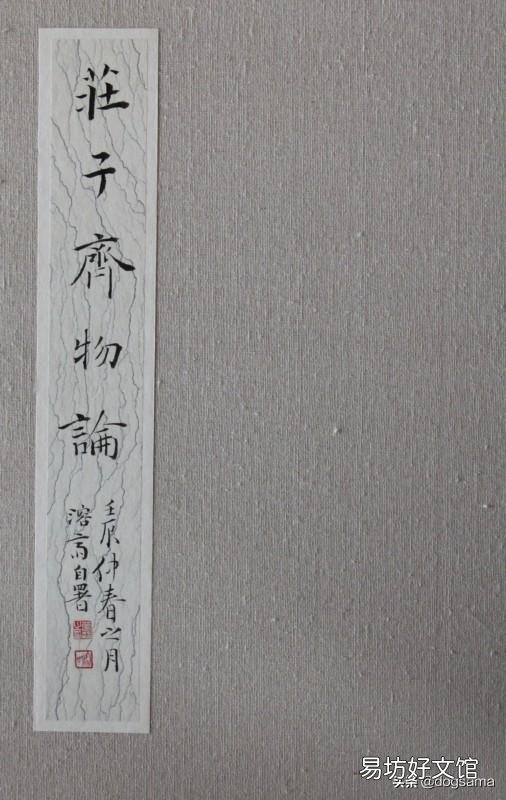 莊子齊物論
壬辰仲春之月
溶斋自署
易坊好文馆
头条@dogsama